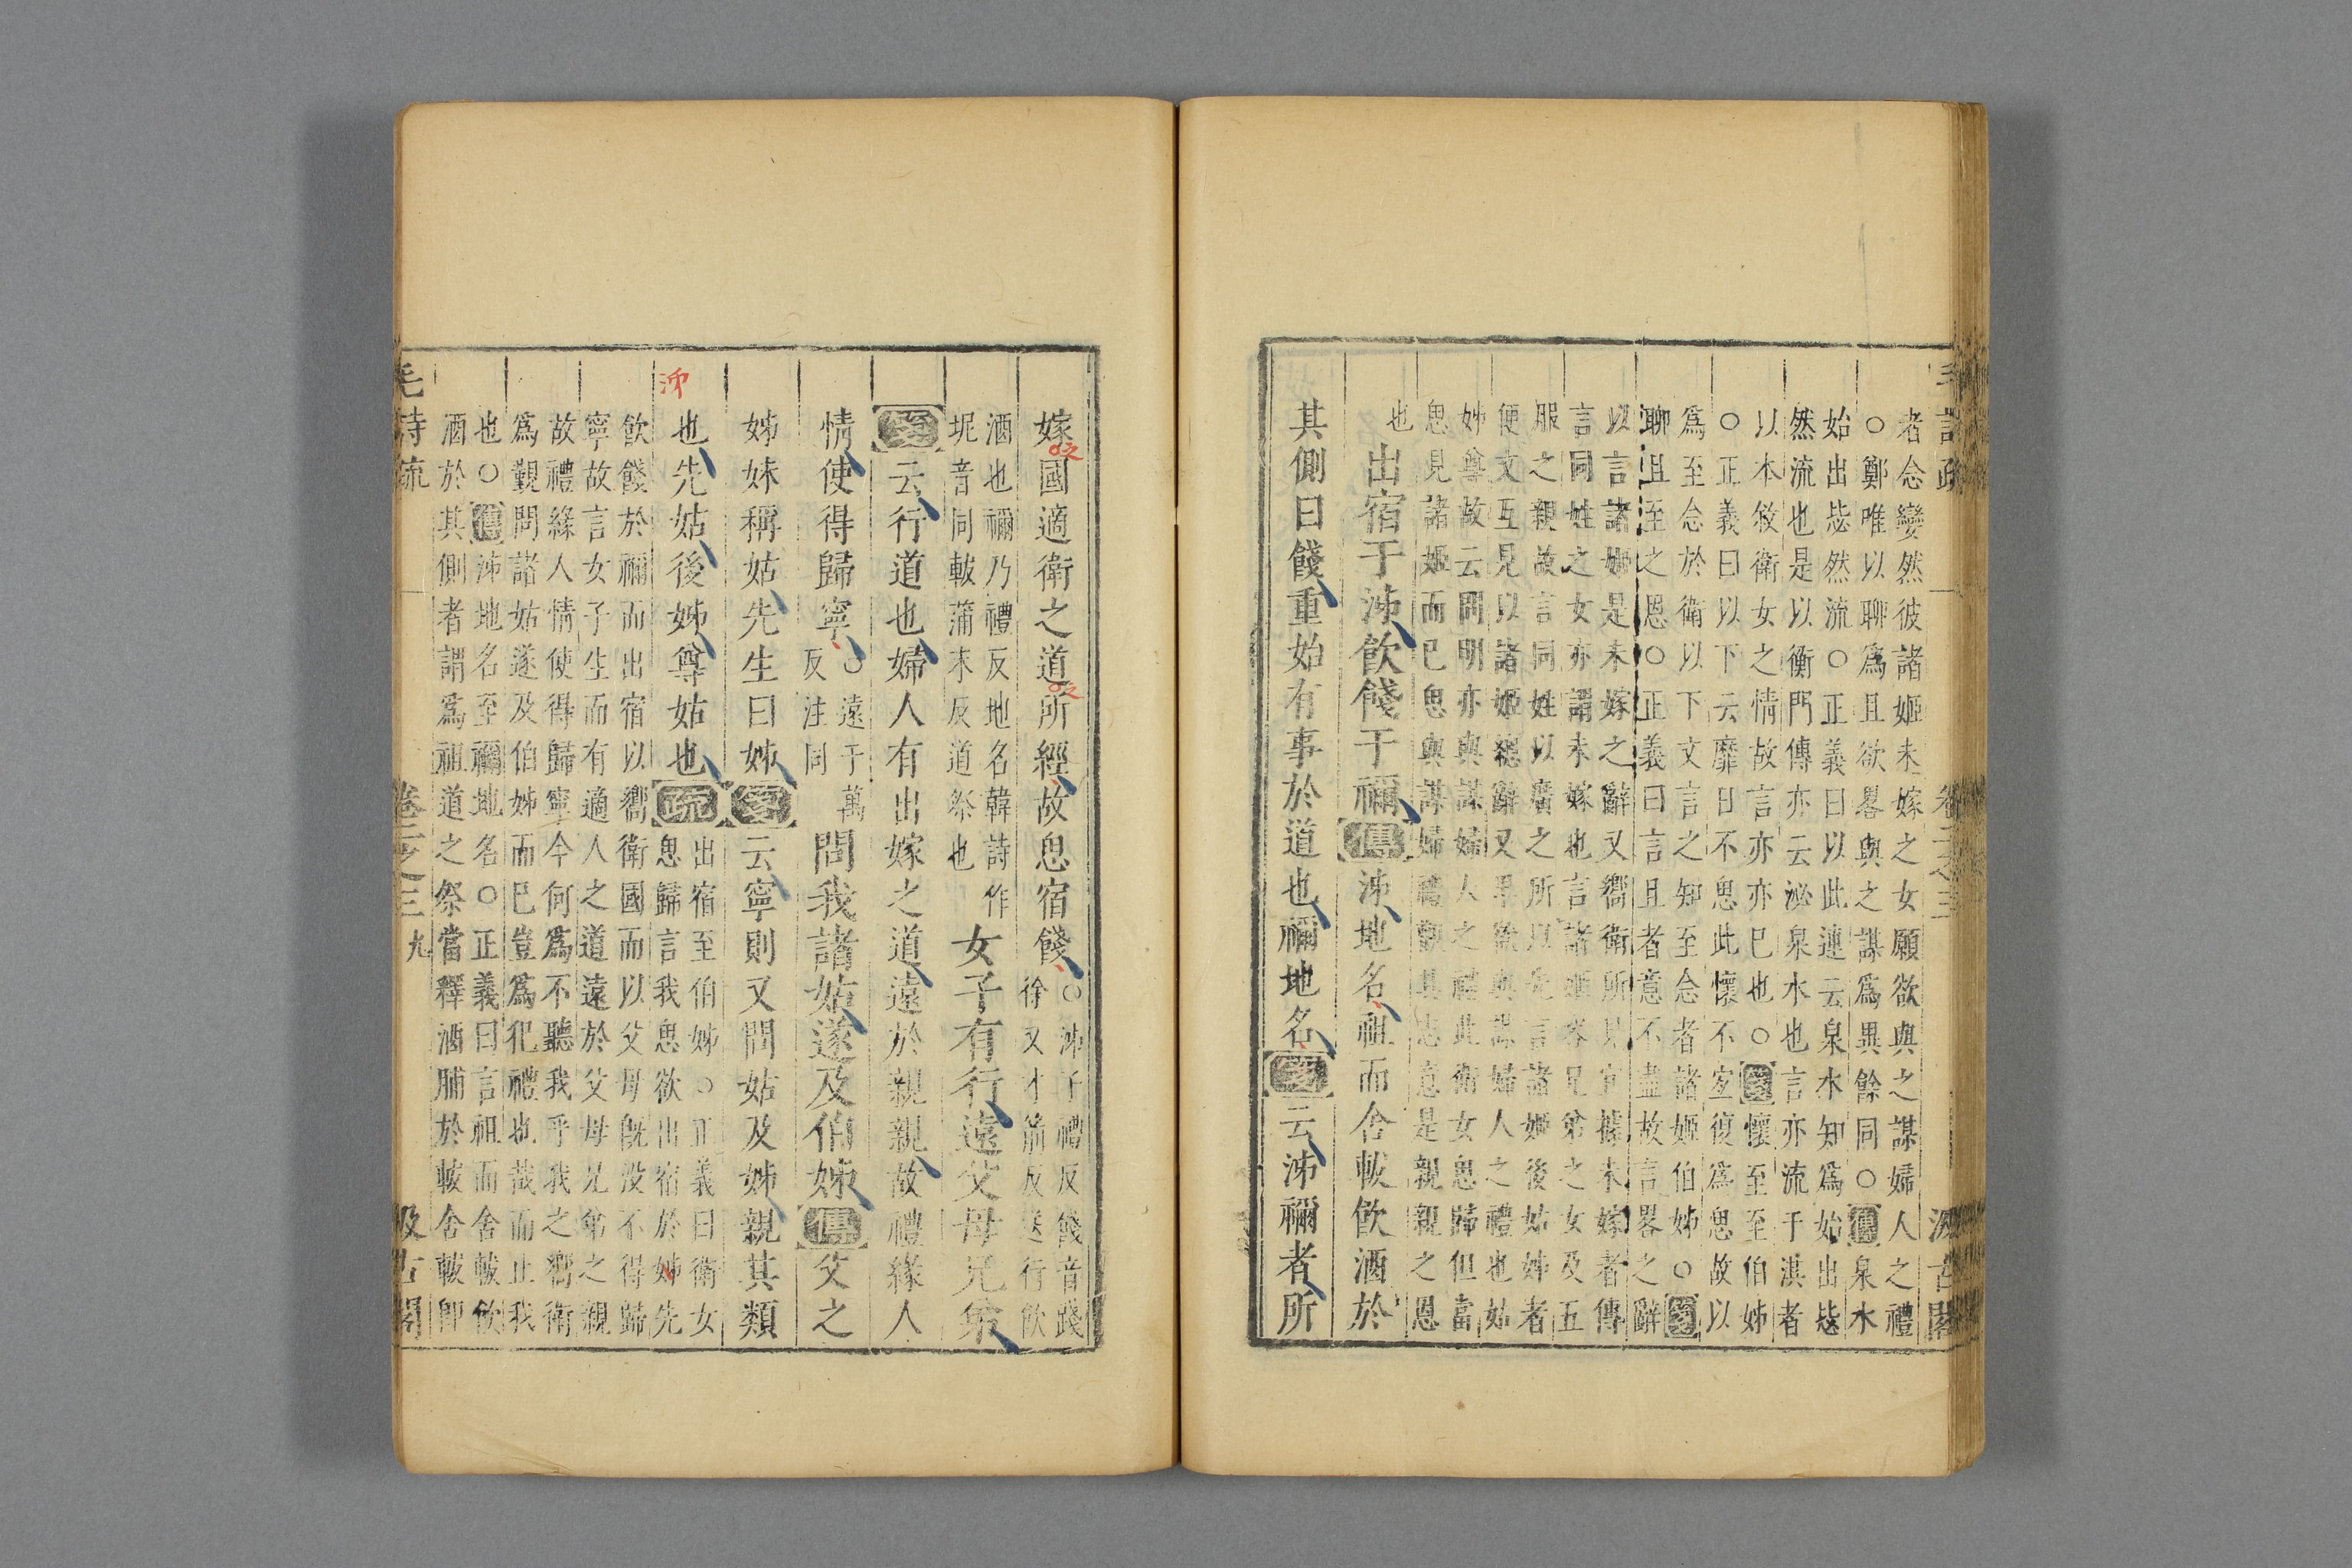 者念孌然彼諸姬未嫁之女願欲與之謀婦人之禮
○鄭唯以聊爲且欲畧與之謀爲異餘同○傳泉水
始出毖然流○正義曰以此連云泉水知爲始出毖
然流也是以衡門傳亦云泌泉水也言亦流于淇者
以本敘衛女之情故言亦亦巳也○箋懷至至伯姊
○正義曰以下云靡日不思此懷不宜復爲思故以
爲至念於衛以下文言之知至念者諸姬伯姊○箋
聊且至之恩○正義曰言且者意不盡故言畧之辭
以言諸姬是未嫁之辭又嚮衛所見宜據未嫁者傳
言同姓之女亦謂未嫁也言諸姬容兄弟之女及五
服之親故言同姓以廣之所以先言諸姬後姑姊者
便文互見以諸姬總辭又卑欲與謀婦人之禮也姑
姊尊故云問明亦與謀婦人之禮此衛女思歸但當
思見諸姬而巳思與謀婦禮觀其志意是親親之恩
也 出宿于泲飲餞于禰傳泲地名祖而舍軷飲酒於
其側曰餞重始有事於道也禰地名箋云泲禰者所
毛詩疏 卷二之三 汲古閣
嫁國適衛之道所經故思宿餞○泲子禮反餞音踐
徐又才箭反送行飲
酒也禰乃禮反地名韓詩作
坭音同軷蒲末反道祭也 女子有行遠父母兄弟
箋云行道也婦人有出嫁之道遠於親親故禮緣人
情使得歸寧○遠于萬
反注同 問我諸姑遂及伯姊傳父之
姊妹稱姑先生曰姊箋云寧則又問姑及姊親其類
也先姑後姊尊姑也疏出宿至伯姊○正義曰衛女
思歸言我思欲出宿於姊先
飲餞於禰而出宿以嚮衛國而以父母既没不得歸
寧故言女子生而有適人之道遠於父母兄弟之親
故禮緣人情使得歸寧今何爲不聽我乎我之嚮衛
爲覲問諸姑遂及伯姊而巳豈爲犯禮也哉而止我
也○傳泲地名至禰地名○正義曰言祖而舍軷飲
酒於其側者謂爲祖道之祭當釋酒脯於軷舍軷卽
毛詩疏 卷二之三 九 汲古閣
泲